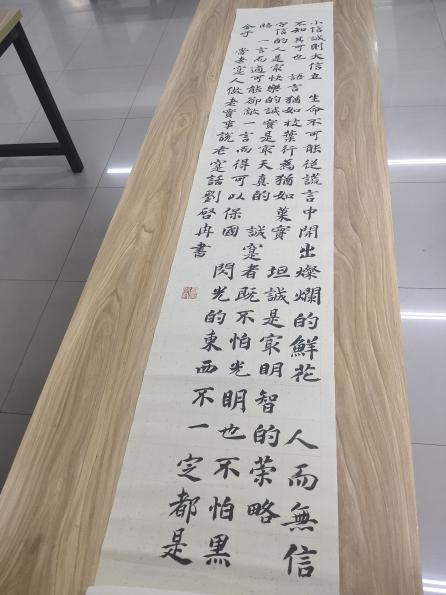 小信誠則大信立 生命不可能從謊言中開出燦爛的鮮花 人而無信
不知其可也 語言猶如枝葉行為猶如菓實 坦誠是最明智的策略
守信的人是最快樂的誠實是最天真的 誠寔者既不怕光明也不怕黑
暗 一言而適可能卻敵一言而得可以保國 閃光的東西不一定都是
金子 當老寔人做老實事說老寔話劉啓冉書